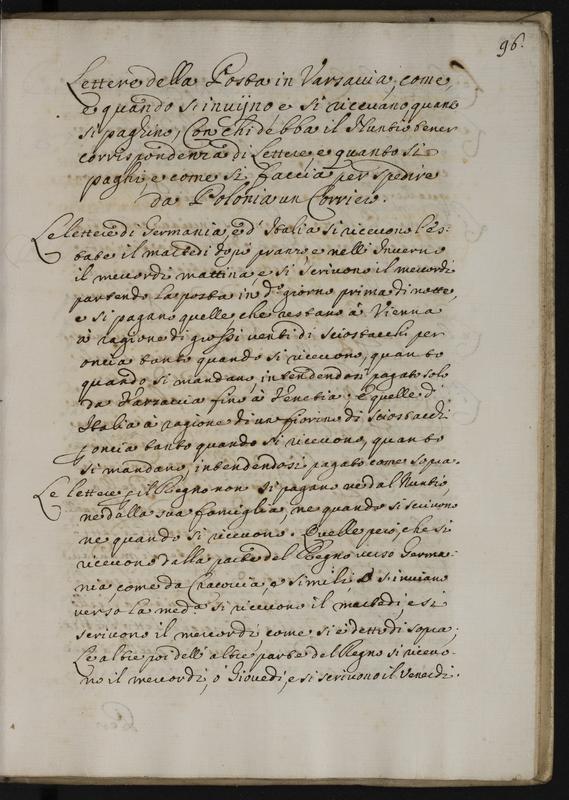 96.
Lettere della Posta in Varsavia, come,
e quando si invijno e si ricevano, quanto
si paghino, Con chi debba il Nuntio tener
corrispondenza di Lettere e quanto si
paghi e come si faccia per spedire
da Polonia un Corriere.
Le lettere di Germania, e d'Italia si ricevono l'es-
tate il martedi dopo pranzo e nell'Inverno
il mercordi mattina e si scrivono il mercordi
partendo la posta in d.o giorno prima di notte,
e si pagano quelle che restano à Vienna
à ragione di grossi venti di Sciostacchi per
oncia tanto quando si ricevono, quanto
quando si mandano intendendosi pagato solo
da Varsavia fino à Venetia. E quelle d'
Italia à ragione di un fiorino di sciostacchi
p oncia tanto quando si ricevono, quanto
si mandano, intendendosi pagato come sopra.
Le lettere p il Regno non si pagano nè dal Nuntio
ne dalla sua famiglia, ne quando si scrivono
ne quando si ricevono. Quelle però, che si
ricevono dalla parte del Regno verso Germa-
nia come da Cracovia, e simili, si inviano
verso la med.a si ricevono il martedi, e si
scrivono il mercordi come si è detto di sopra;
Le altre poi delle altre parte del Regno si ricevo-
no il mercordi, ò Giovedi, e si scrivono il Venerdi.